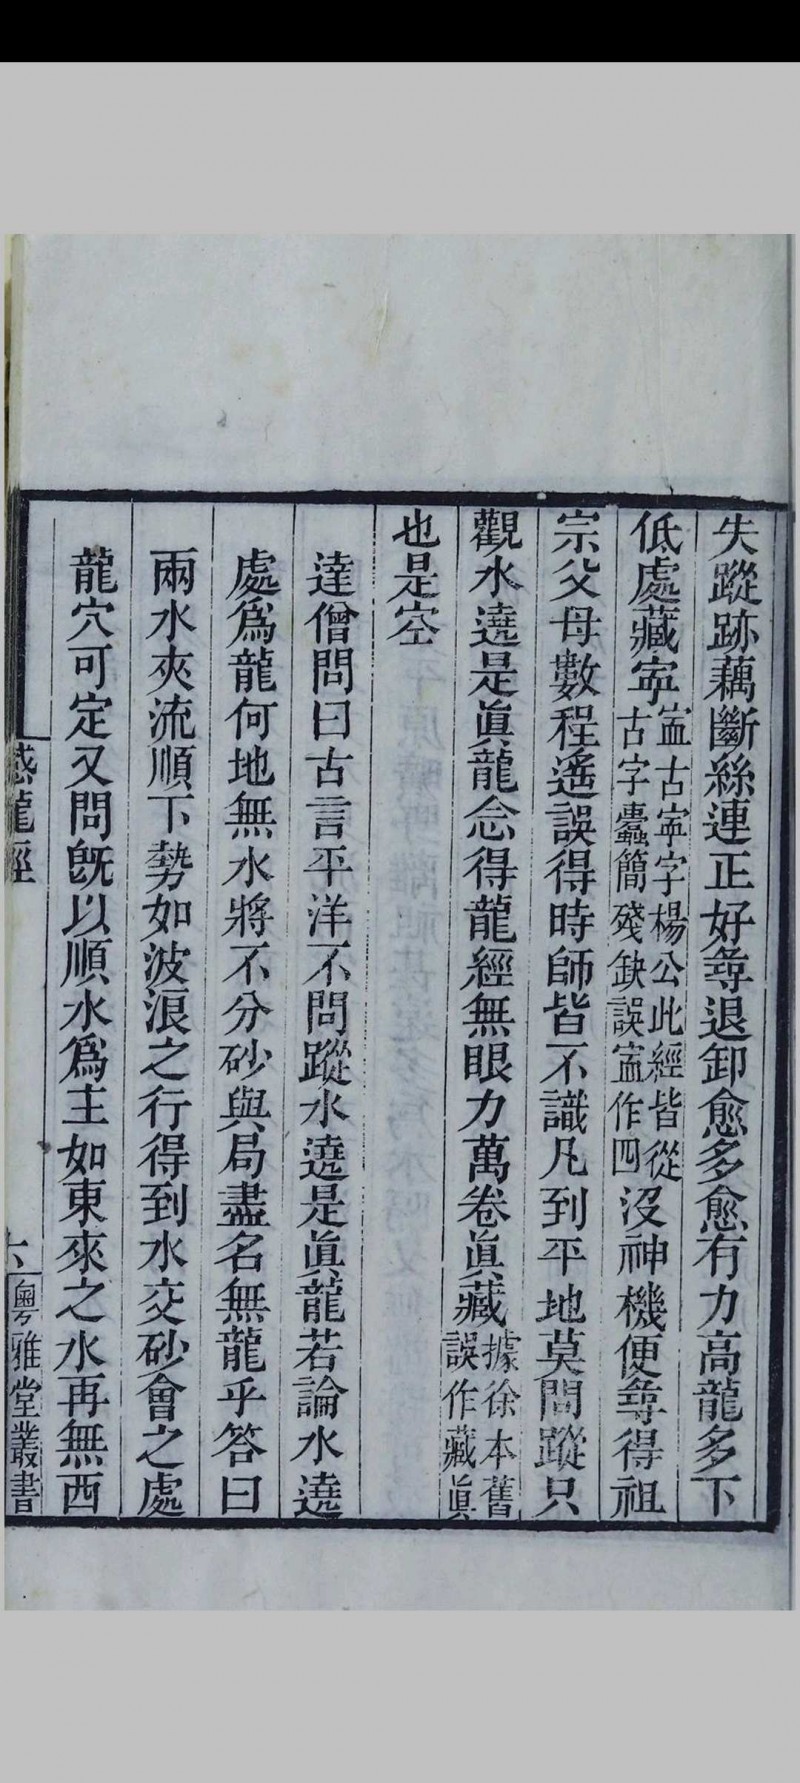 失蹤跡藕斷絲連正好尋退卸愈多愈有力高龍多下
低處藏寍寍古寧字楊公此經皆從古字蠹簡殘缺誤寍作四沒神機便尋得祖
宗父母數程遙誤得時師皆不識凡到平地莫問蹤只
觀水遶是眞龍念得龍經無眼力萬卷眞藏據徐本舊誤作藏眞
也是空
達僧問曰古言平洋不問蹤水遶是眞龍若論水遶
處爲龍何地無水將不分砂與局盡名無龍乎答曰
兩水夾流順下勢如波浪之行得到水交砂會之處
龍穴可定又問旣以順水爲主如東來之水再無西
撼龍經
六
粵雅堂叢書